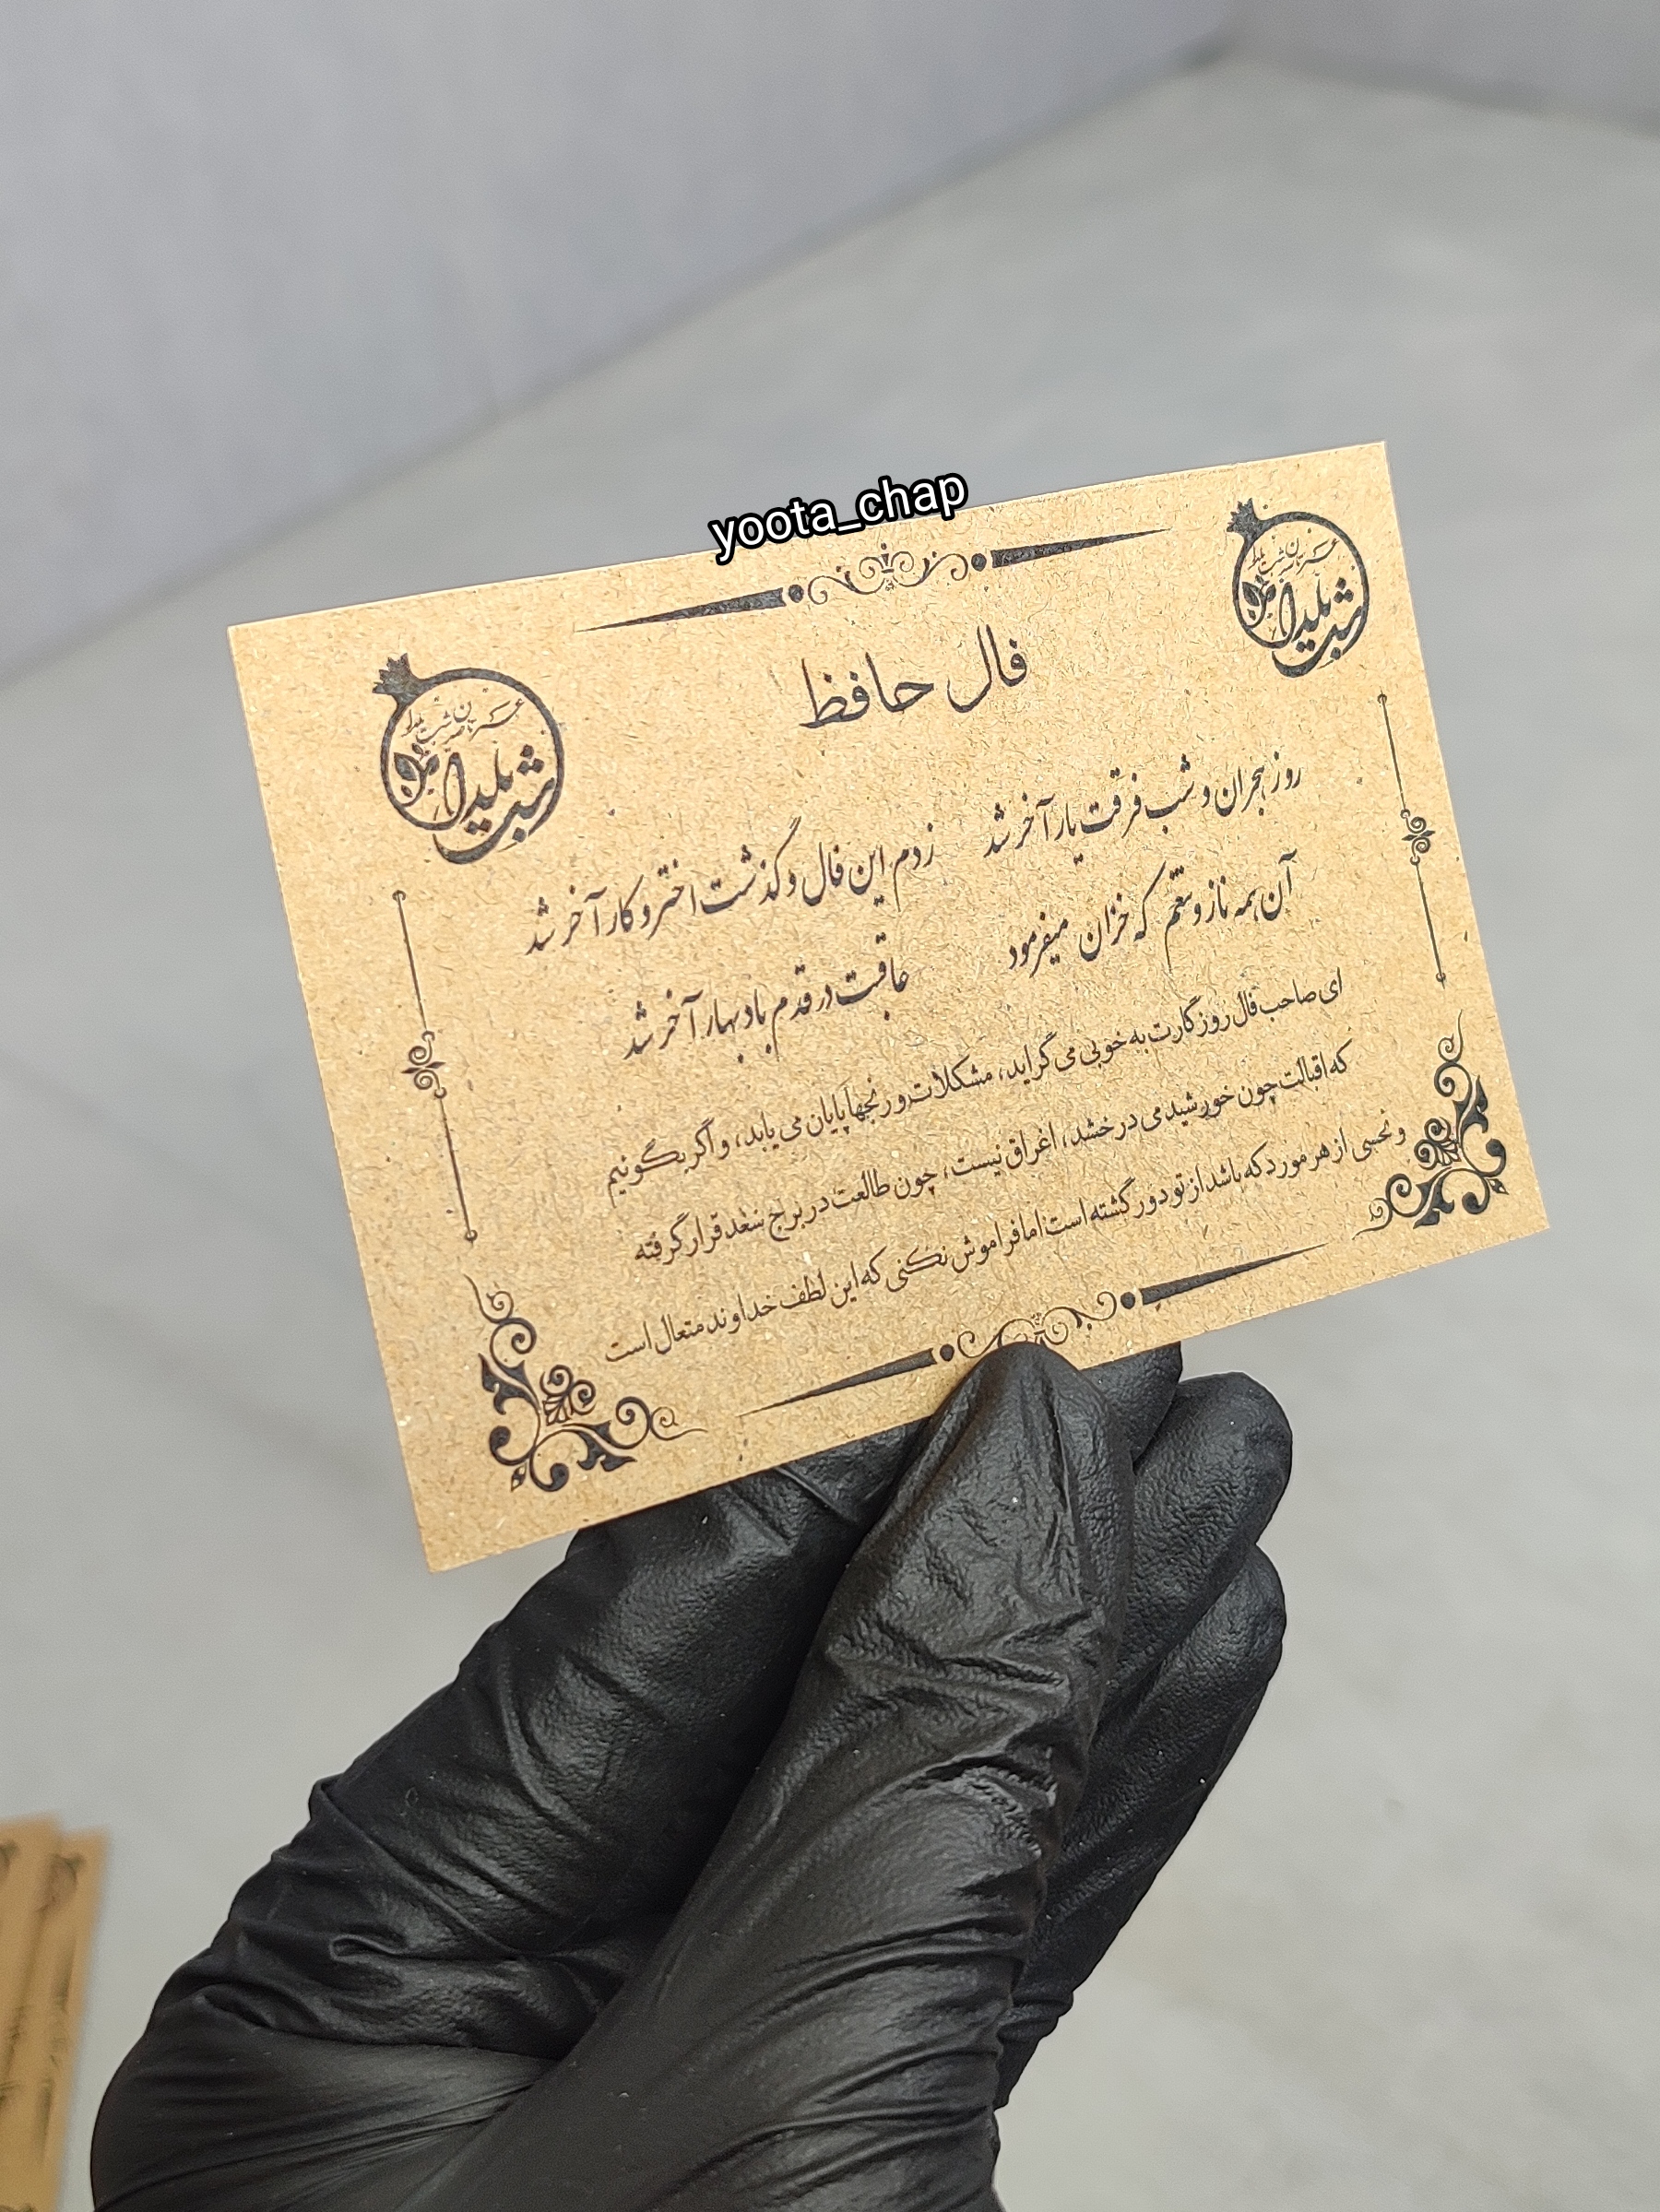 yoota_chap
فال حافظ
شب یلدا
شب یلدا
روز هجران و شب فرقت یار آخر شد
زدم این فال و گذشت اختر و کار آخر شد
آن همه ناز و تنعم که خزان میفرمود
عاقبت در قدم باد بهار آخر شد
ای صاحب فال روزگارت به خوبی می گراید، مشکلات و رنجها پایان می یابد، و اگر بگوئیم
که اقبالت چون خورشید می درخشد، اغراق نیست، چون طالعت در برج سعد قرار گرفته
و نحسی از هر مورد که باشد از تو دور گشته است اما فراموش نکنی که این لطف خداوند متعال است